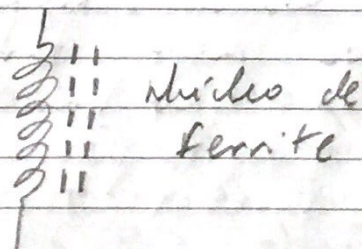 Núcleo de
ferrite